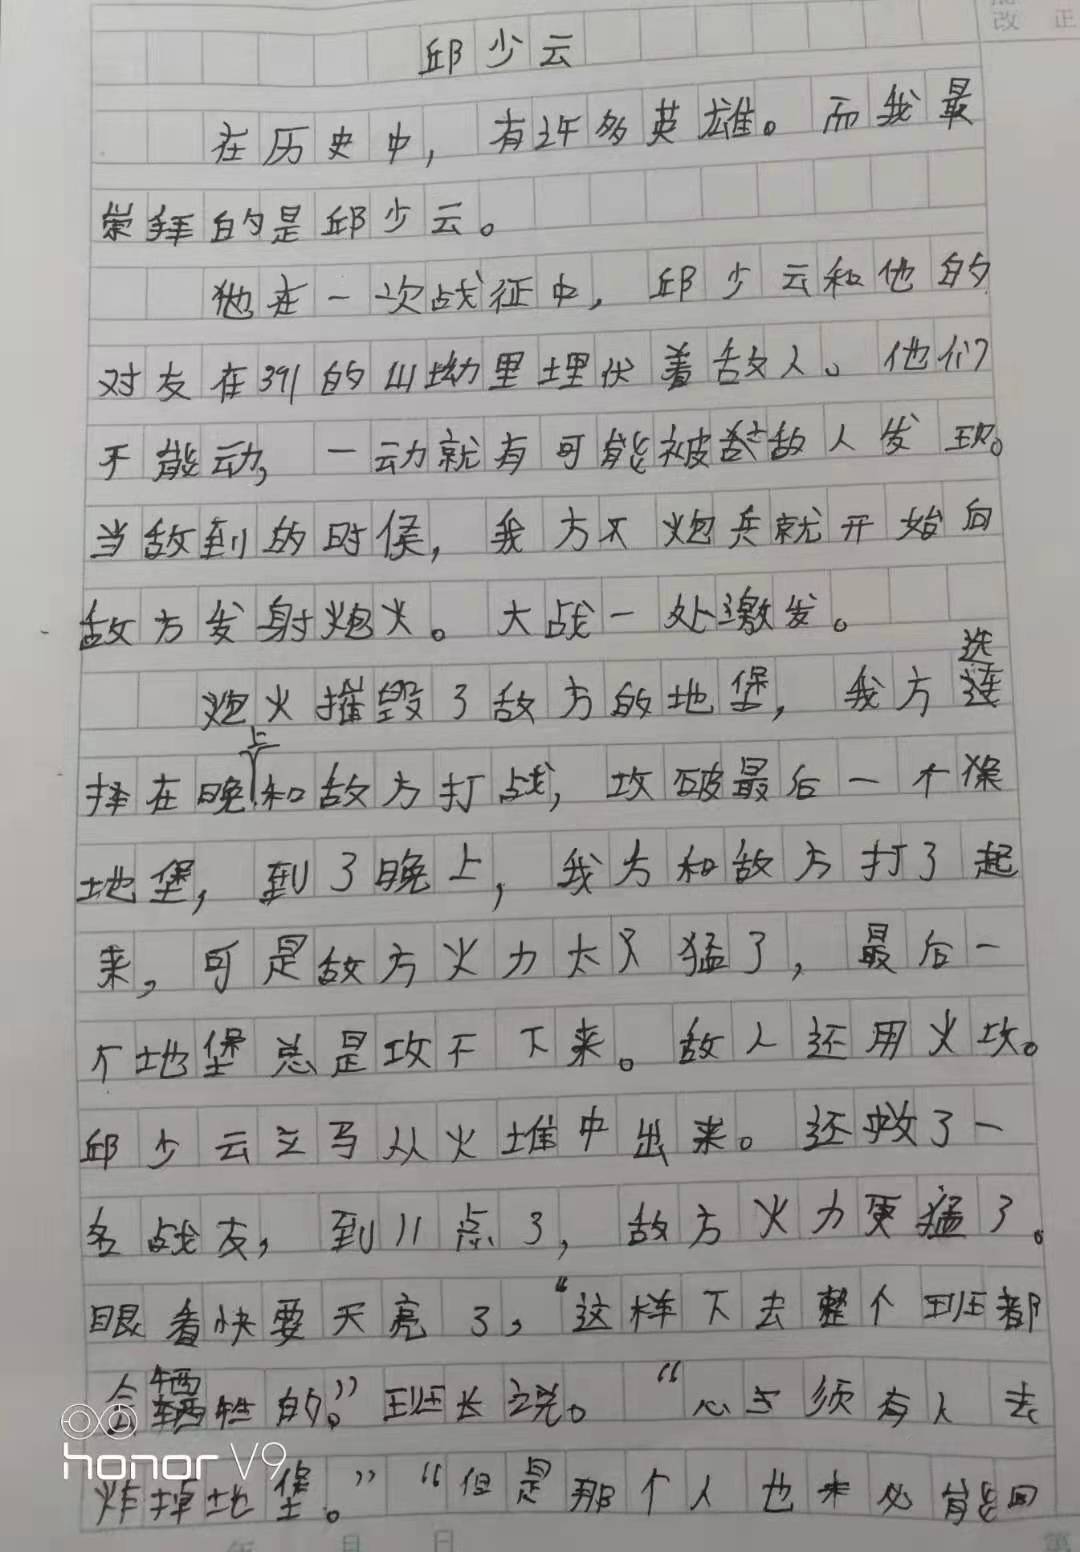 改 正
邱少云
在历史中，有许多英雄。而我最
崇拜的是邱少云。
他在一次战征中，邱少云和他的
对友在391的山坳里埋伏着敌人。他们
不能动，一动就有可能被敌人发现。
当敌到的时候，我方不炮兵就开始向
敌方发射炮火。大战一处激发。
炮火摧毁了敌方的地堡，我方选
择在晚上和敌方打战，攻破最后一个
地堡，到了晚上，我方和敌方打了起
来，可是敌方火力太猛了，最后一
个地堡总是攻不下来。敌人还用火攻。
邱少云立马从火堆中出来。还救了一
名战友，到11点了，敌方火力更猛了。
眼看快要天亮了，“这样下去整个班都
会牺牲的。”班长说。“必须有人去
炸掉地堡。”“但是那个人也未必能回
honor V9
年 月 日
第